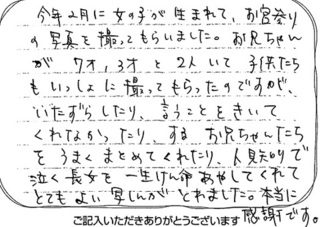 今年2月に女の子が生まれて、お宮参り
の写真を撮ってもらいました。お兄ちゃん
が 7才、3才 と 2人いて 子供たち
もいっしょに撮ってもらったのですが、
いたずらしたり、言うことをきいて
くれなかったり、する お兄ちゃんたち
を うまく まとめてくれたり、人見知りで
泣く長女を 一生けん命 あやしてくれて
とてもよい写しんが とれました。本当に
ご記入いただきありがとうございます 感謝です。